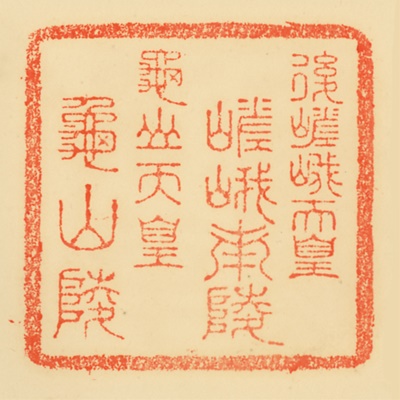 後嵯峨天皇
嵯峨南陵
龜山天皇
龜山陵